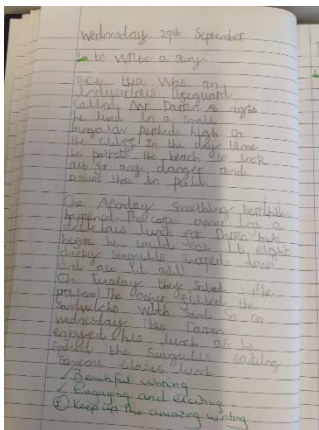 Wednesday 29th September
to write a story
Once there was an
industrious lifeguard
called Mr Darren
he lived in a small
bungalow perched high on
the cliffs. In the day time
he patrols the beach to look
out for any danger and
in peril.
One Monday something terrible
happened. The cafe owner left a
delicious lunch for Darren but
before he could eat it eight
cheeky seagulls swooped down
and ate it all!
On Tuesday they solved the
problem! The owner filled the
sandwichs with sand. So on
wednesday Darren
enjoyed his lunch as he
the seagulls
someone elses lunch
✓ Beautiful writing
✓ Engaging and exciting
Keep up the amazing writing